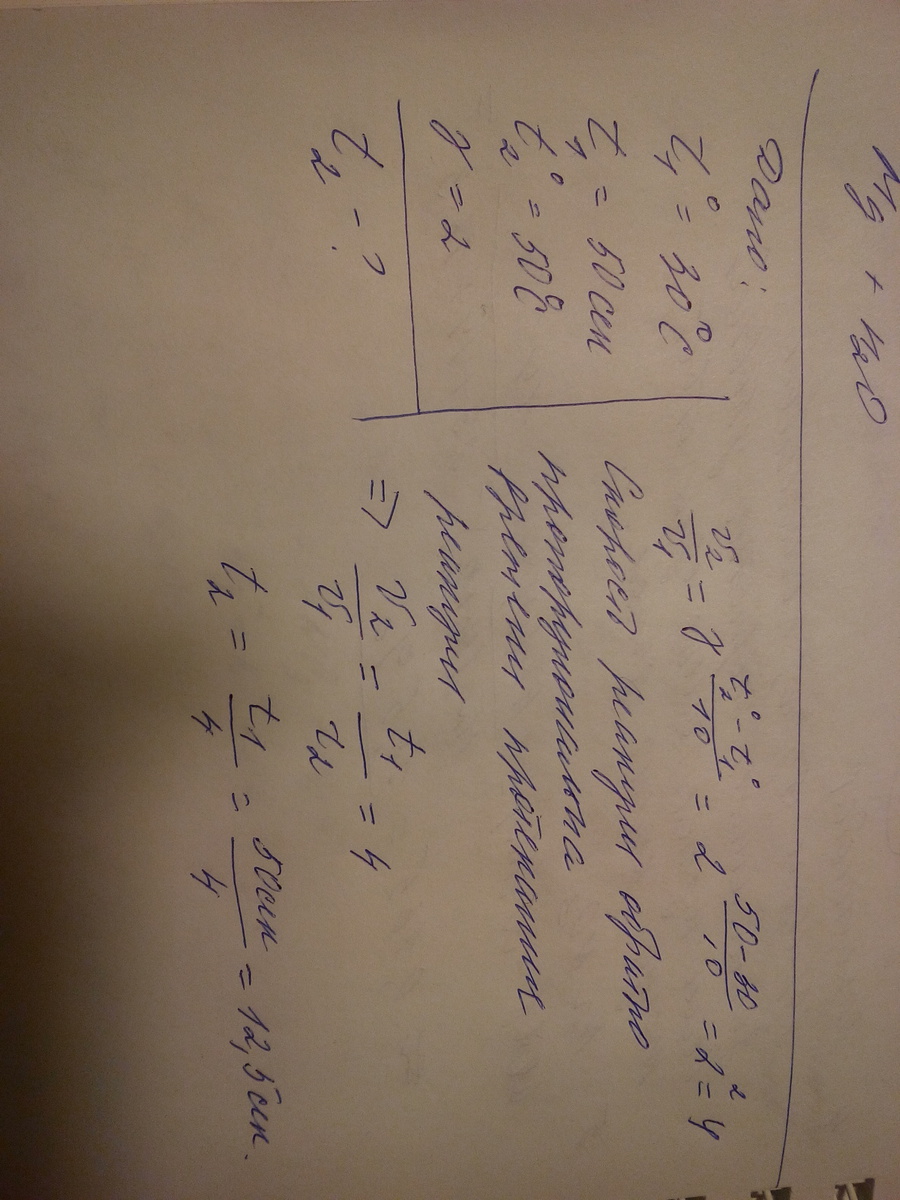 Mg + H2O
Дано:
t₁° = 30°C
t₁ = 50 сек
t₂° = 50°C
γ = 2
t₂ - ?
v₂/v₁ = γ^((t₂° - t₁°)/10) = 2^((50-30)/10) = 2² = 4
Скорость реакции обратно
пропорциональна
времени протекания
реакции
=> v₂/v₁ = t₁/t₂ = 4
t₂ = t₁/4 = 50 сек/4 = 12,5 сек.